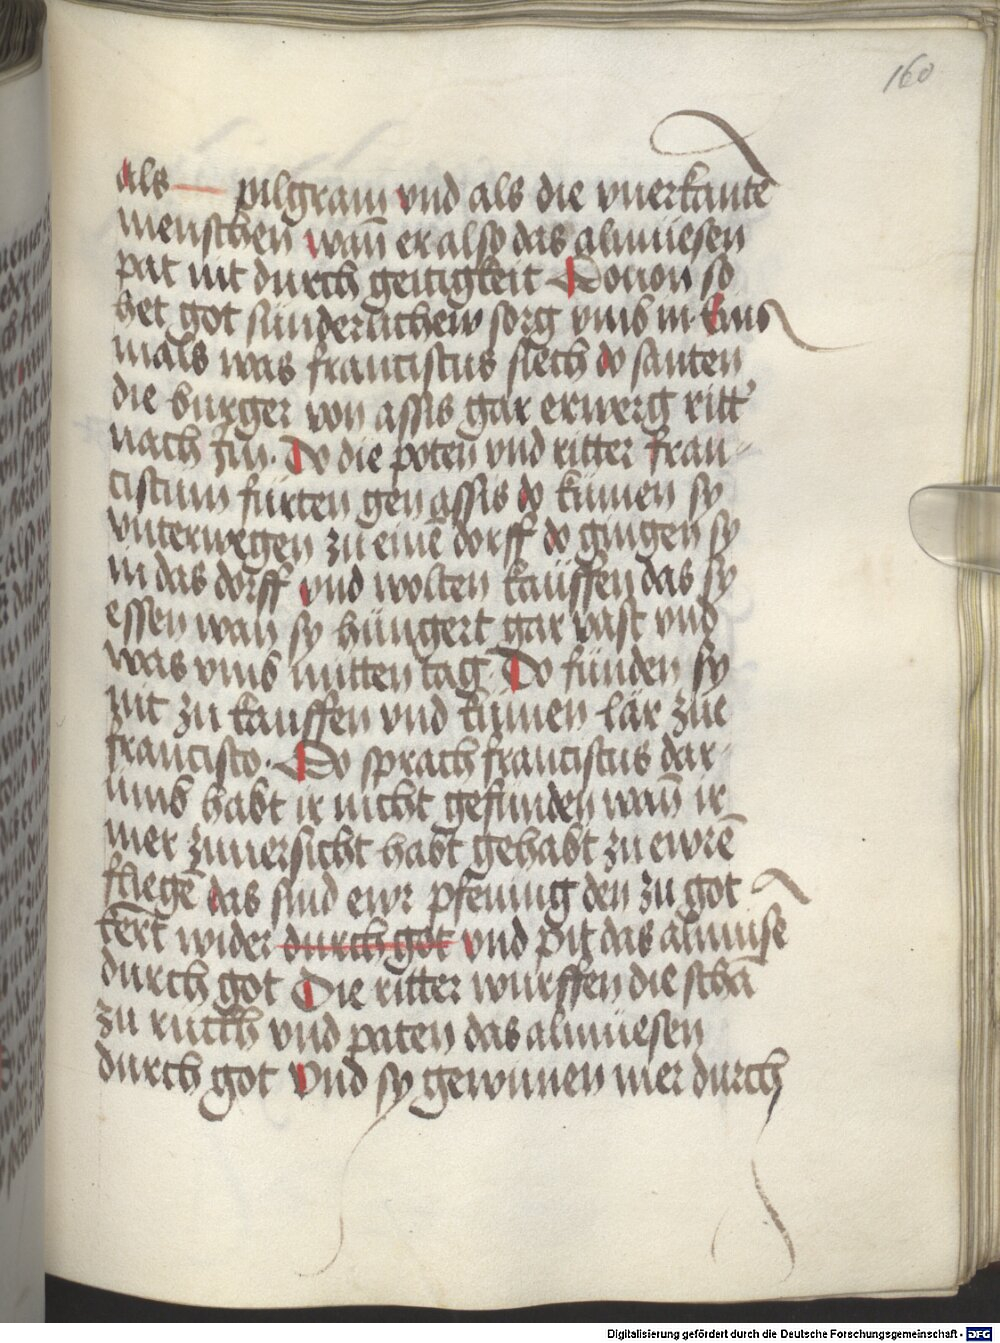 160
als pilgram vnd als die vnerkante
menschen wañ er also das almüesen
pat nit durch geitigkeit Dorvon so
het got sünderlichew sorg vmb in Eins
mals was franciscus siech do santen
die burger von assis gar erwerg ritt'
nach im. Do die poten vnd ritter fran-
ciscum fürten gen assis do kumen sy
vnterwegen zu einē dorff do gingen sy
in das dorff vnd wolten kauffen das sy
essen wan sy hüngert gar vast vnd
was vmb mitten tag Do fünden sy
nit zu kauffen vnd kumen lär zue
francisco. Do sprach franciscus dar
vmb habt ir nicht gefunden wañ ir
mer zuuersicht habt gehabt zu ewrē
fliegē das sind ewr pfening den zu got
kērt wider durch got vnd pit das almuse
durch got Die ritter wurffen die schā
zu ruckh vnd paten das almüesen
durch got Vnd sy gewunnen mer durch
Digitalisierung gefördert durch die Deutsche Forschungsgemeinschaft - DFG